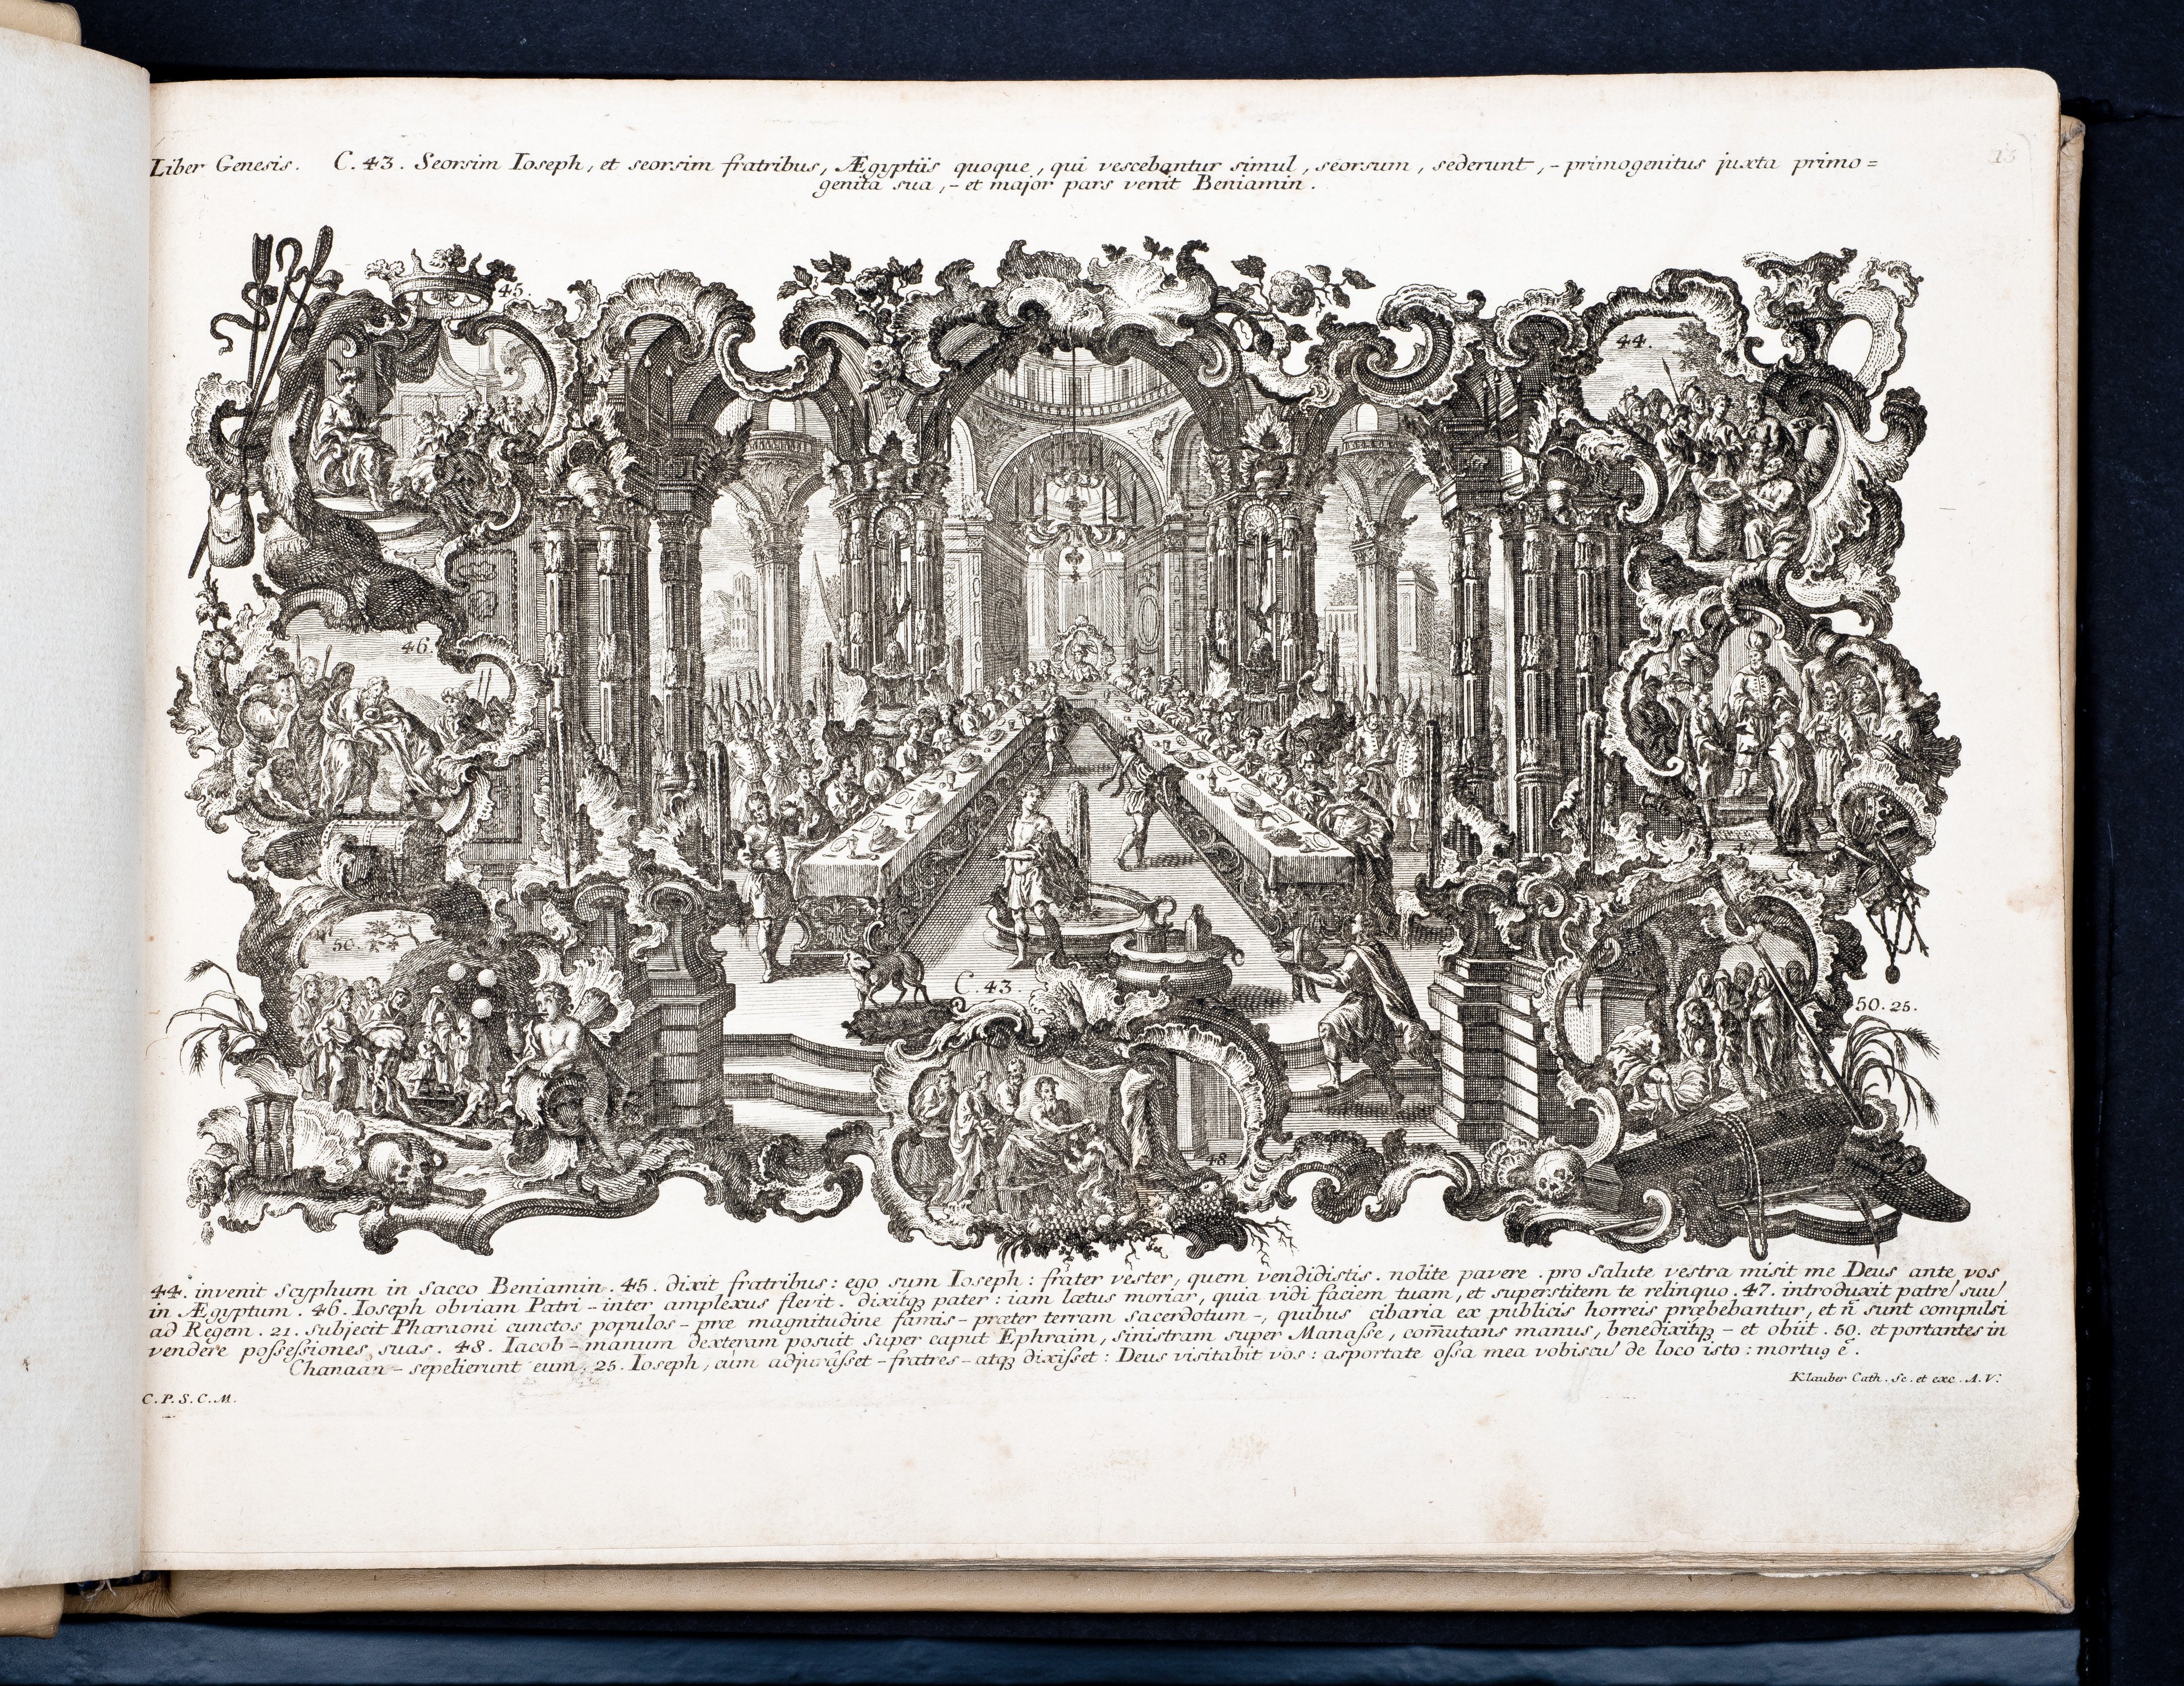 Liber Genesis. C. 43. Seorsim Ioseph, et seorsim fratribus, Ægyptiis quoque, qui vescebantur simul, seorsum, sederunt, - primogenitus juxta primo=
genita sua, - et major pars venit Beniamin.
15
45.
44.
46.
47
50.
C. 43
50. 25.
48
44. invenit scyphum in sacco Beniamin. 45. dixit fratribus: ego sum Ioseph: frater vester, quem vendidistis. nolite pavere. pro salute vestra misit me Deus ante vos
in Ægyptum. 46. Ioseph obviam Patri - inter amplexus flevit. dixitq₃ pater: iam lætus moriar, quia vidi faciem tuam, et superstitem te relinquo. 47. introduxit patrē suū
ad Regem. 21. subjecit Pharaoni cunctos populos - præ magnitudine famis - præter terram sacerdotum -, quibus cibaria ex publicis horreis præbebantur, et n̄ sunt compulsi
vendere possessiones suas. 48. Iacob - manum dexteram posuit super caput Ephraim, sinistram super Manasse, com̄utans manus, benedixitq₃ - et obiit. 50. et portantes in
Chanaan - sepelierunt eum. 25. Ioseph, cum adjurasset - fratres - atq₃ dixisset: Deus visitabit vos: asportate ossa mea vobiscū de loco isto: mortu9 ē.
Klauber Cath. Sc. et exc. A. V.
C. P. S. C. M.